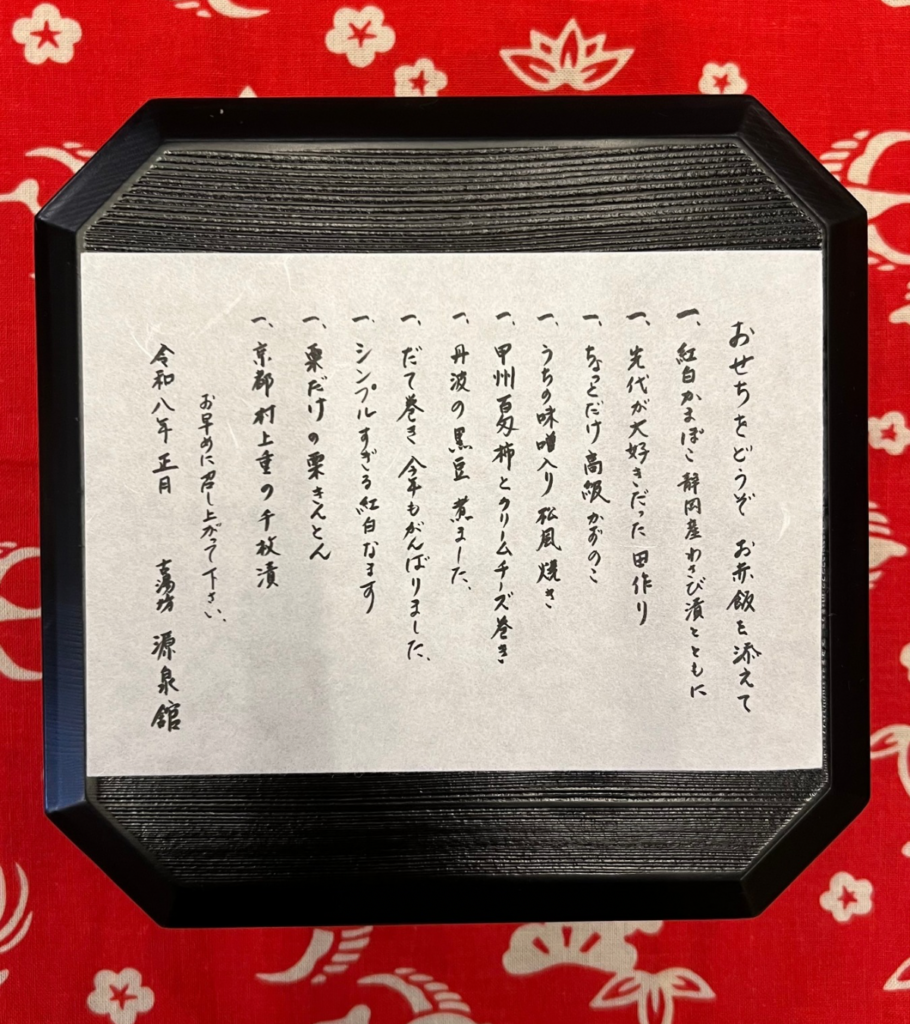 おせちをどうぞ お赤飯を添えて
一、紅白かまぼこ 静岡産わさび漬とともに
一、先代が大好きだった 田作り
一、ちょっとだけ高級かずのこ
一、うちの味噌入り 松風焼き
一、甲州百匁柿とクリームチーズ巻き
一、丹波の黒豆 煮ました、
一、だて巻き 今年もがんばりました、
一、シンプルすぎる紅白なます
一、栗だけの栗きんとん
一、京都 村上重の千枚漬
お早めに召し上がって下さい、
令和八年 正月 古湯坊 源泉舘